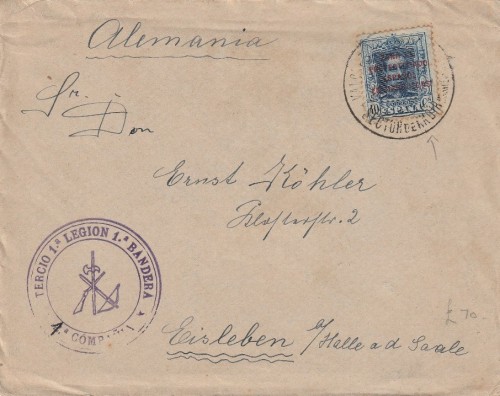 Alemania
Sr.
Don
Ernst Köhler
Klosterstr. 2
Eisleben b/Halle a d Saale
TERCIO 1.ª LEGION 1.ª BANDERA
COMP
40
ESPAÑA
£70.